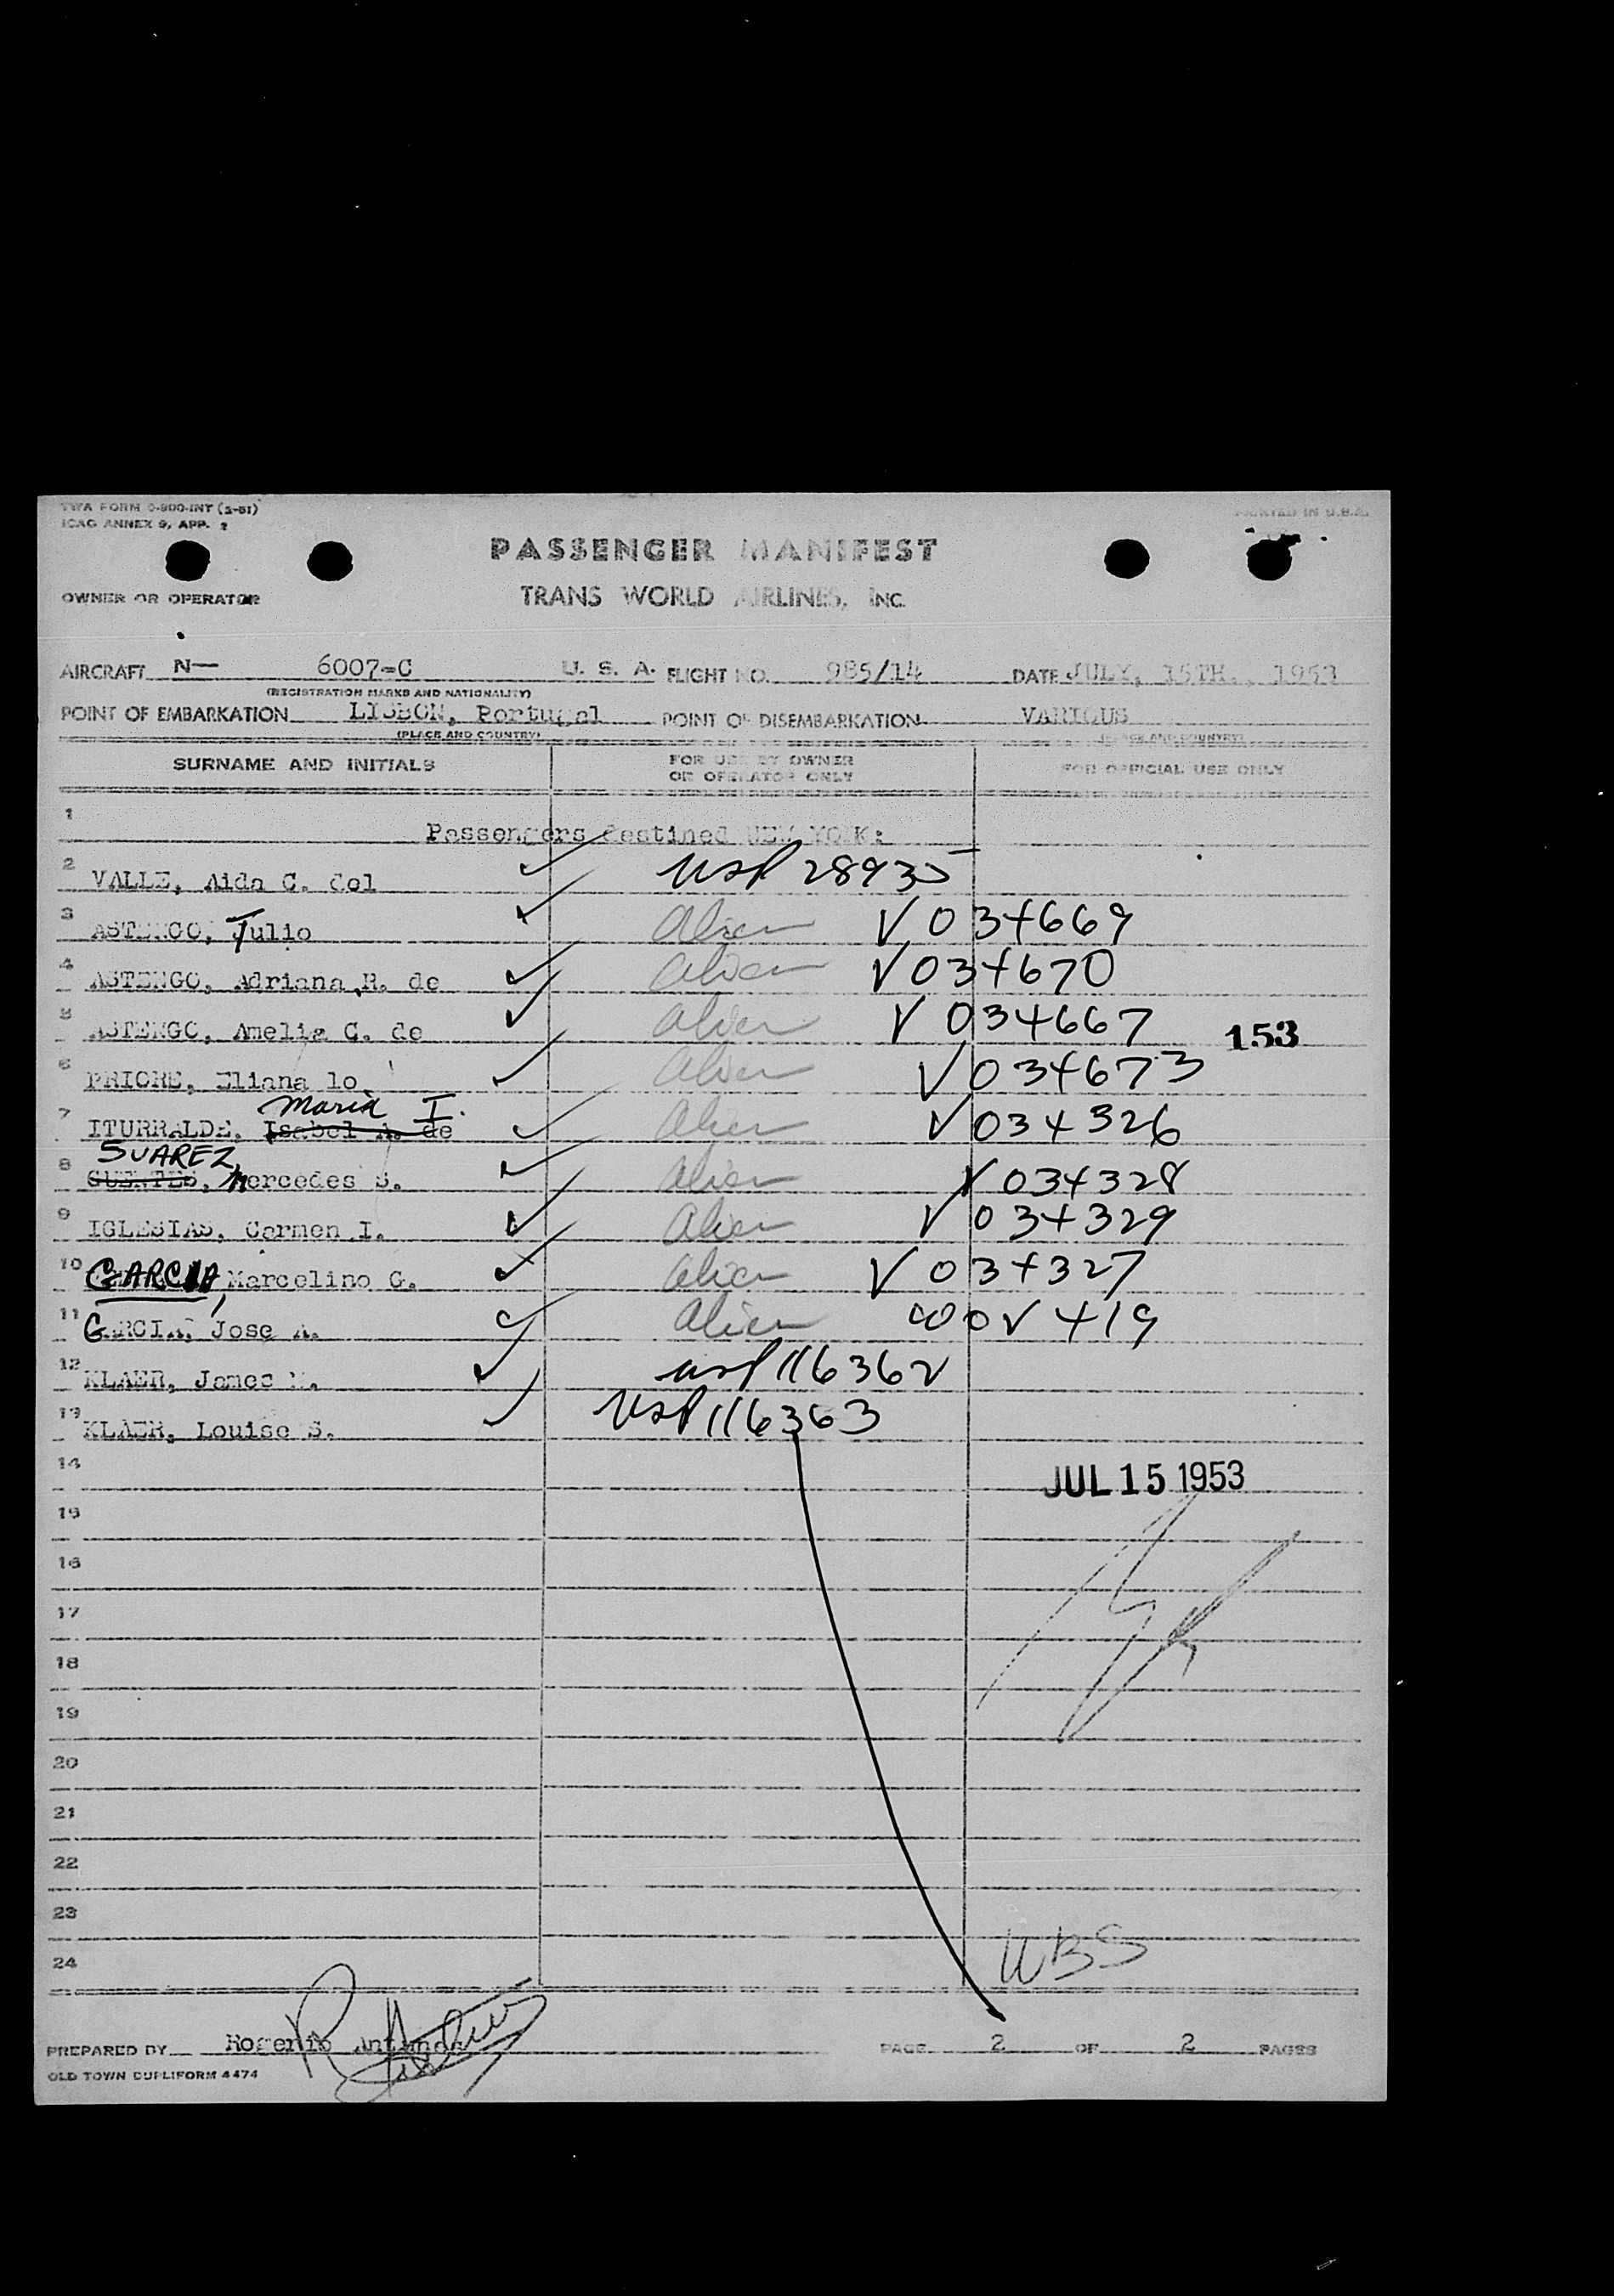 TWA FORM 0-900-INT (2-51)
ICAO ANNEX 9, APP. 2
PRINTED IN U.S.A.
PASSENGER MANIFEST
OWNER OR OPERATOR
TRANS WORLD AIRLINES, INC.
AIRCRAFT N— 6007-C U. S. A. FLIGHT NO. 985/14 DATE JULY, 15TH., 1953
(REGISTRATION MARKS AND NATIONALITY)
POINT OF EMBARKATION LISBON, Portugal POINT OF DISEMBARKATION VARIOUS
(PLACE AND COUNTRY) (PLACE AND COUNTRY)
SURNAME AND INITIALS
FOR USE BY OWNER
OR OPERATOR ONLY
FOR OFFICIAL USE ONLY
1 Passengers destined NEW YORK:
2 VALLE, Aida C. del USP 28935
3 ASTENGO, Julio Alien V 034669
4 ASTENGO, Adriana R. de Alien V 034670
5 ASTENGO, Amelia C. de Alien V 034667
153
6 PRIORE, Eliana lo Alien V 034673
Maria I.
7 ITURRALDE, Isabel A. de Alien V 034326
SUAREZ,
8 Mercedes S. Alien V 034328
9 IGLESIAS, Carmen I. Alien V 034329
10 GARCIA, Marcelino G. Alien V 034327
11 GARCIA, Jose A. Alien 419
12 KLAER, James USP 116362
13 KLAER, Louise S. USP 116363
14
JUL 15 1953
15
16
17
18
19
20
21
22
23
24
WBS
PREPARED BY Rogerio PAGE 2 OF 2 PAGES
OLD TOWN DUPLIFORM 4474